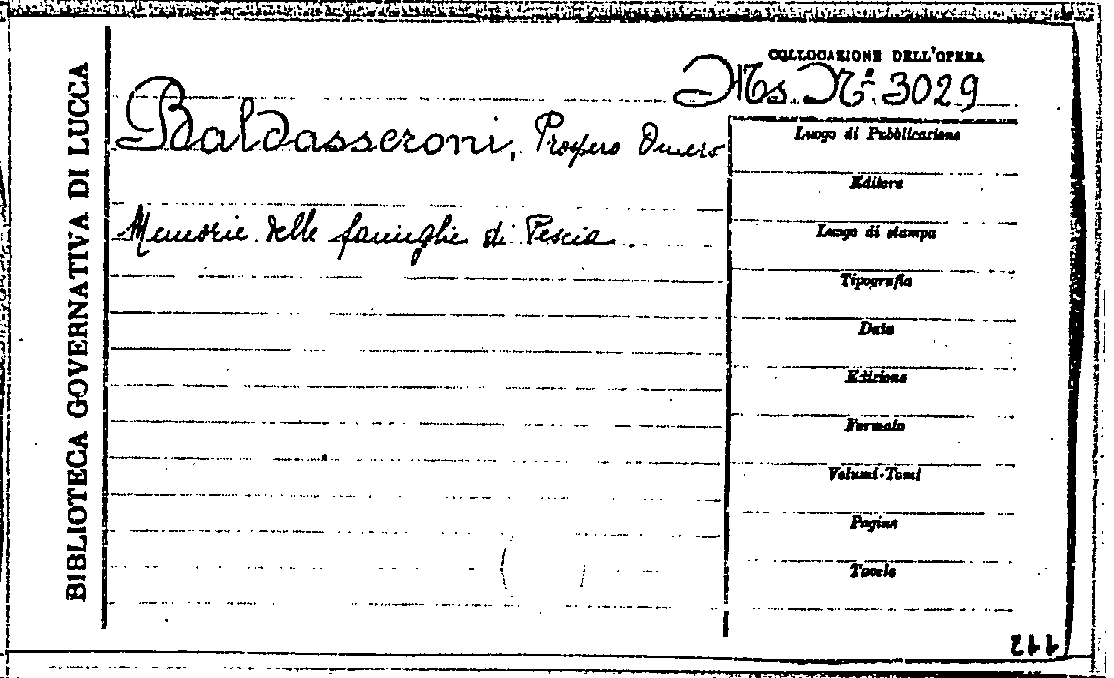 BIBLIOTECA GOVERNATIVA DI LUCCA
COLLOCAZIONE DELL'OPERA
Ms. N.º 3029
Baldasseroni, Prospero Omero
Memorie delle famiglie di Pescia.
Luogo di Pubblicazione
Editore
Luogo di stampa
Tipografia
Data
Edizione
Formato
Volumi-Tomi
Pagine
Tavole